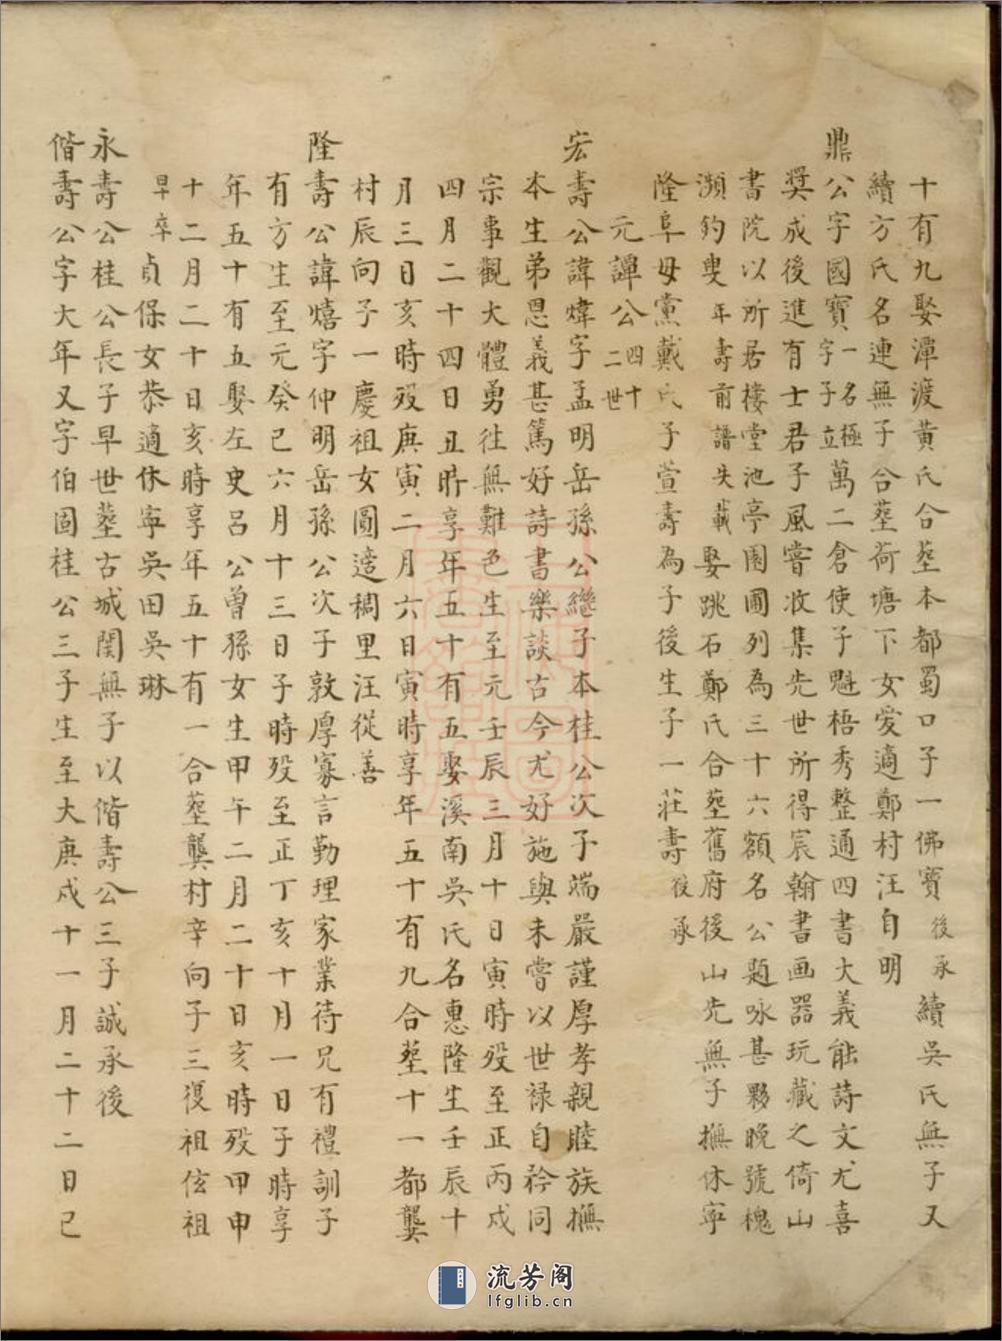 十有九娶潭渡黃氏合塟本都蜀口子一佛寶後承續吳氏無子又
續方氏名連無子合塟荷塘下女愛適鄭村汪自明
鼎公字國寶一名極字子立萬二倉使子魁梧秀整通四書大義能詩文尤喜
奨成後進有士君子風嘗收集先世所得宸翰書画器玩藏之倚山
書院以所居樓堂池亭園圃列為三十六額名公題咏甚夥晚號槐
瀕釣叟年壽前譜失載娶跳石鄭氏合塟舊府後山先無子撫休寧
隆阜母黨戴氏子萱壽為子後生子一莊壽後承
元譚公四十二世
宏壽公諱煒字孟明岳孫公繼子本桂公次子端嚴謹厚孝親睦族撫
本生弟恩義甚篤好詩書樂談古今尤好施與未嘗以世禄自矜同
宗事觀大體勇往無難色生至元壬辰三月十日寅時殁至正丙戍
四月二十四日丑時享年五十有五娶溪南吳氏名惠隆生壬辰十
月三日亥時殁庚寅二月六日寅時享年五十有九合塟十一都龔
村辰向子一慶祖女圓適稠里汪從善
隆壽公諱熺字仲明岳孫公次子敦厚寡言勤理家業待兄有禮訓子
有方生至元癸巳六月十三日子時殁至正丁亥十月一日子時享
年五十有五娶左史呂公曾孫女生甲午二月二十日亥時殁甲申
十二月二十日亥時享年五十有一合塟龔村辛向子三復祖佉祖
早卒貞保女恭適休寧吳田吳琳
永壽公桂公長子早世塟古城関無子以偕壽公三子誠承後
偕壽公字大年又字伯固桂公三子生至大庚戍十一月二十二日己
流芳阁
lfglib.cn